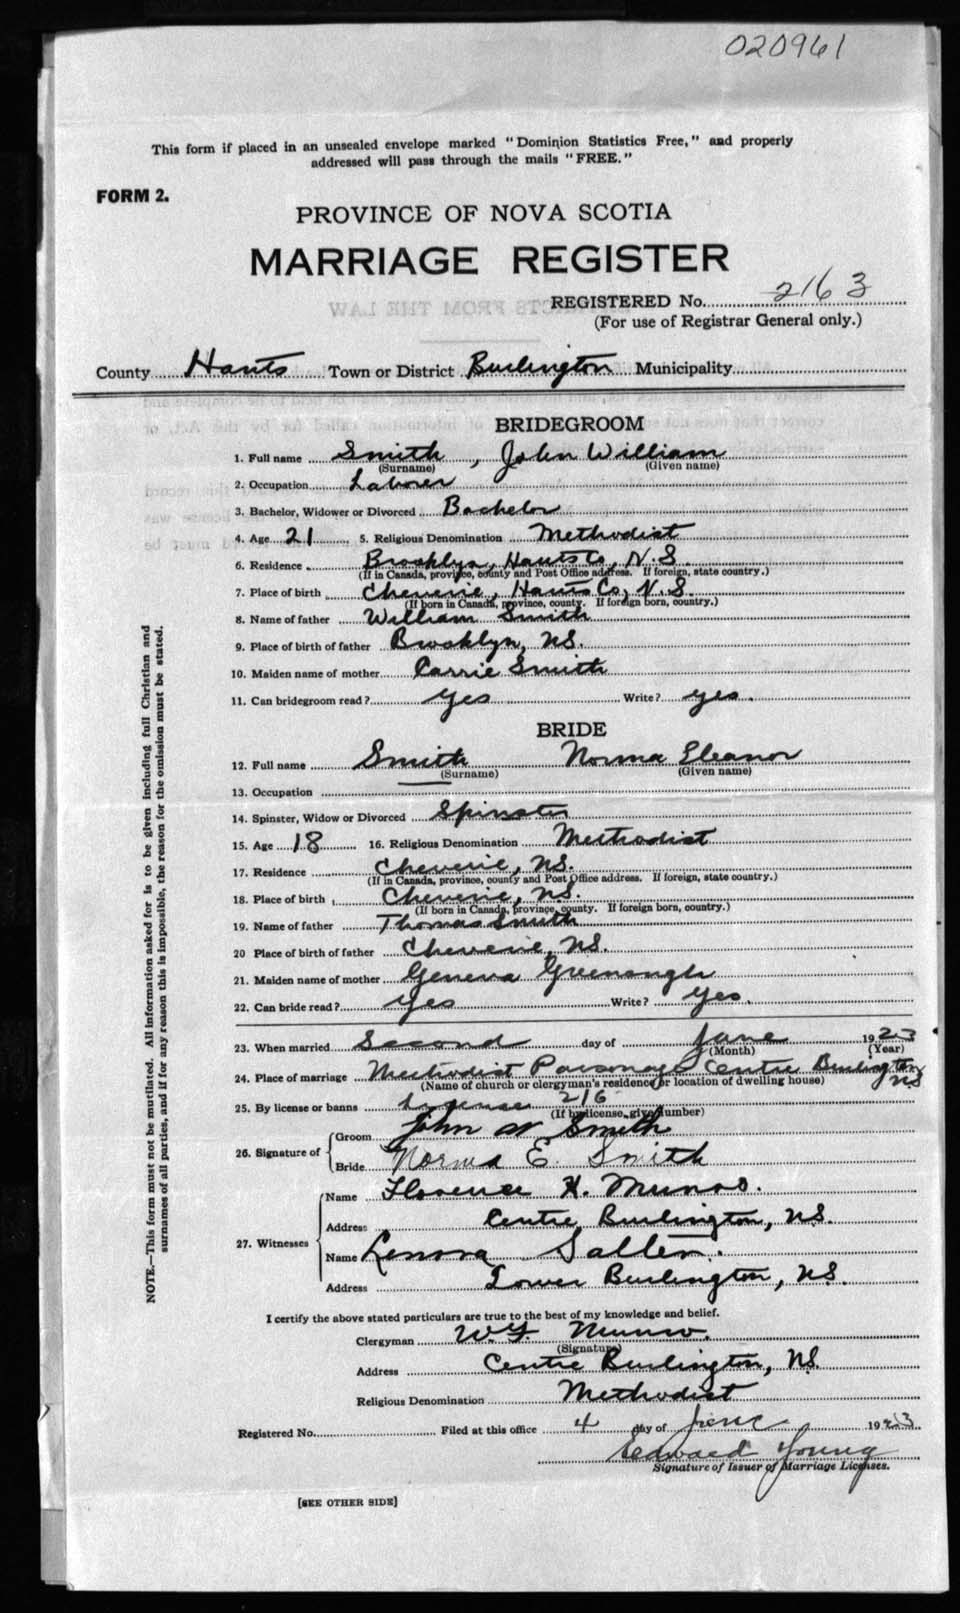 020961
This form if placed in an unsealed envelope marked "Dominion Statistics Free," and properly
addressed will pass through the mails "FREE."
FORM 2.
PROVINCE OF NOVA SCOTIA
MARRIAGE REGISTER
REGISTERED No. 2163
(For use of Registrar General only.)
County Hants Town or District Burlington Municipality
BRIDEGROOM
1. Full name Smith, John William
(Surname) (Given name)
2. Occupation Laborer
3. Bachelor, Widower or Divorced Bachelor
4. Age 21 5. Religious Denomination Methodist
6. Residence Brooklyn, Hants Co, N.S.
(If in Canada, province, county and Post Office address. If foreign, state country.)
7. Place of birth Cheverie, Hants Co, N.S.
(If born in Canada, province, county. If foreign born, country.)
8. Name of father William Smith
9. Place of birth of father Brooklyn, NS.
10. Maiden name of mother Carrie Smith
11. Can bridegroom read? Yes Write? yes.
BRIDE
12. Full name Smith Norma Eleanor
(Surname) (Given name)
13. Occupation
14. Spinster, Widow or Divorced Spinster
15. Age 18 16. Religious Denomination Methodist
17. Residence Cheverie, NS.
(If in Canada, province, county and Post Office address. If foreign, state country.)
18. Place of birth Cheverie, NS.
(If born in Canada, province, county. If foreign born, country.)
19. Name of father Thomas Smith
20 Place of birth of father Cheverie, NS.
21. Maiden name of mother Geneva Greenough
22. Can bride read? Yes Write? Yes.
23. When married Second day of June 1923
(Month) (Year)
24. Place of marriage Methodist Parsonage Centre Burlington NS
(Name of church or clergyman's residence or location of dwelling house)
25. By license or banns License 216
(If by license, give number)
26. Signature of Groom John W Smith
Bride Norma E. Smith
27. Witnesses Name Florence H. Munro.
Address Centre Burlington, NS.
Name Lenora Salter.
Address Lower Burlington, NS.
I certify the above stated particulars are true to the best of my knowledge and belief.
Clergyman W.F. Munro.
(Signature)
Address Centre Burlington, NS.
Religious Denomination Methodist
Registered No. Filed at this office 4 day of June 1923
Edward Young
Signature of Issuer of Marriage Licenses.
[SEE OTHER SIDE]
NOTE.—This form must not be mutilated. All information asked for is to be given including full Christian and
surnames of all parties, and if for any reason this is impossible, the reason for the omission must be stated.